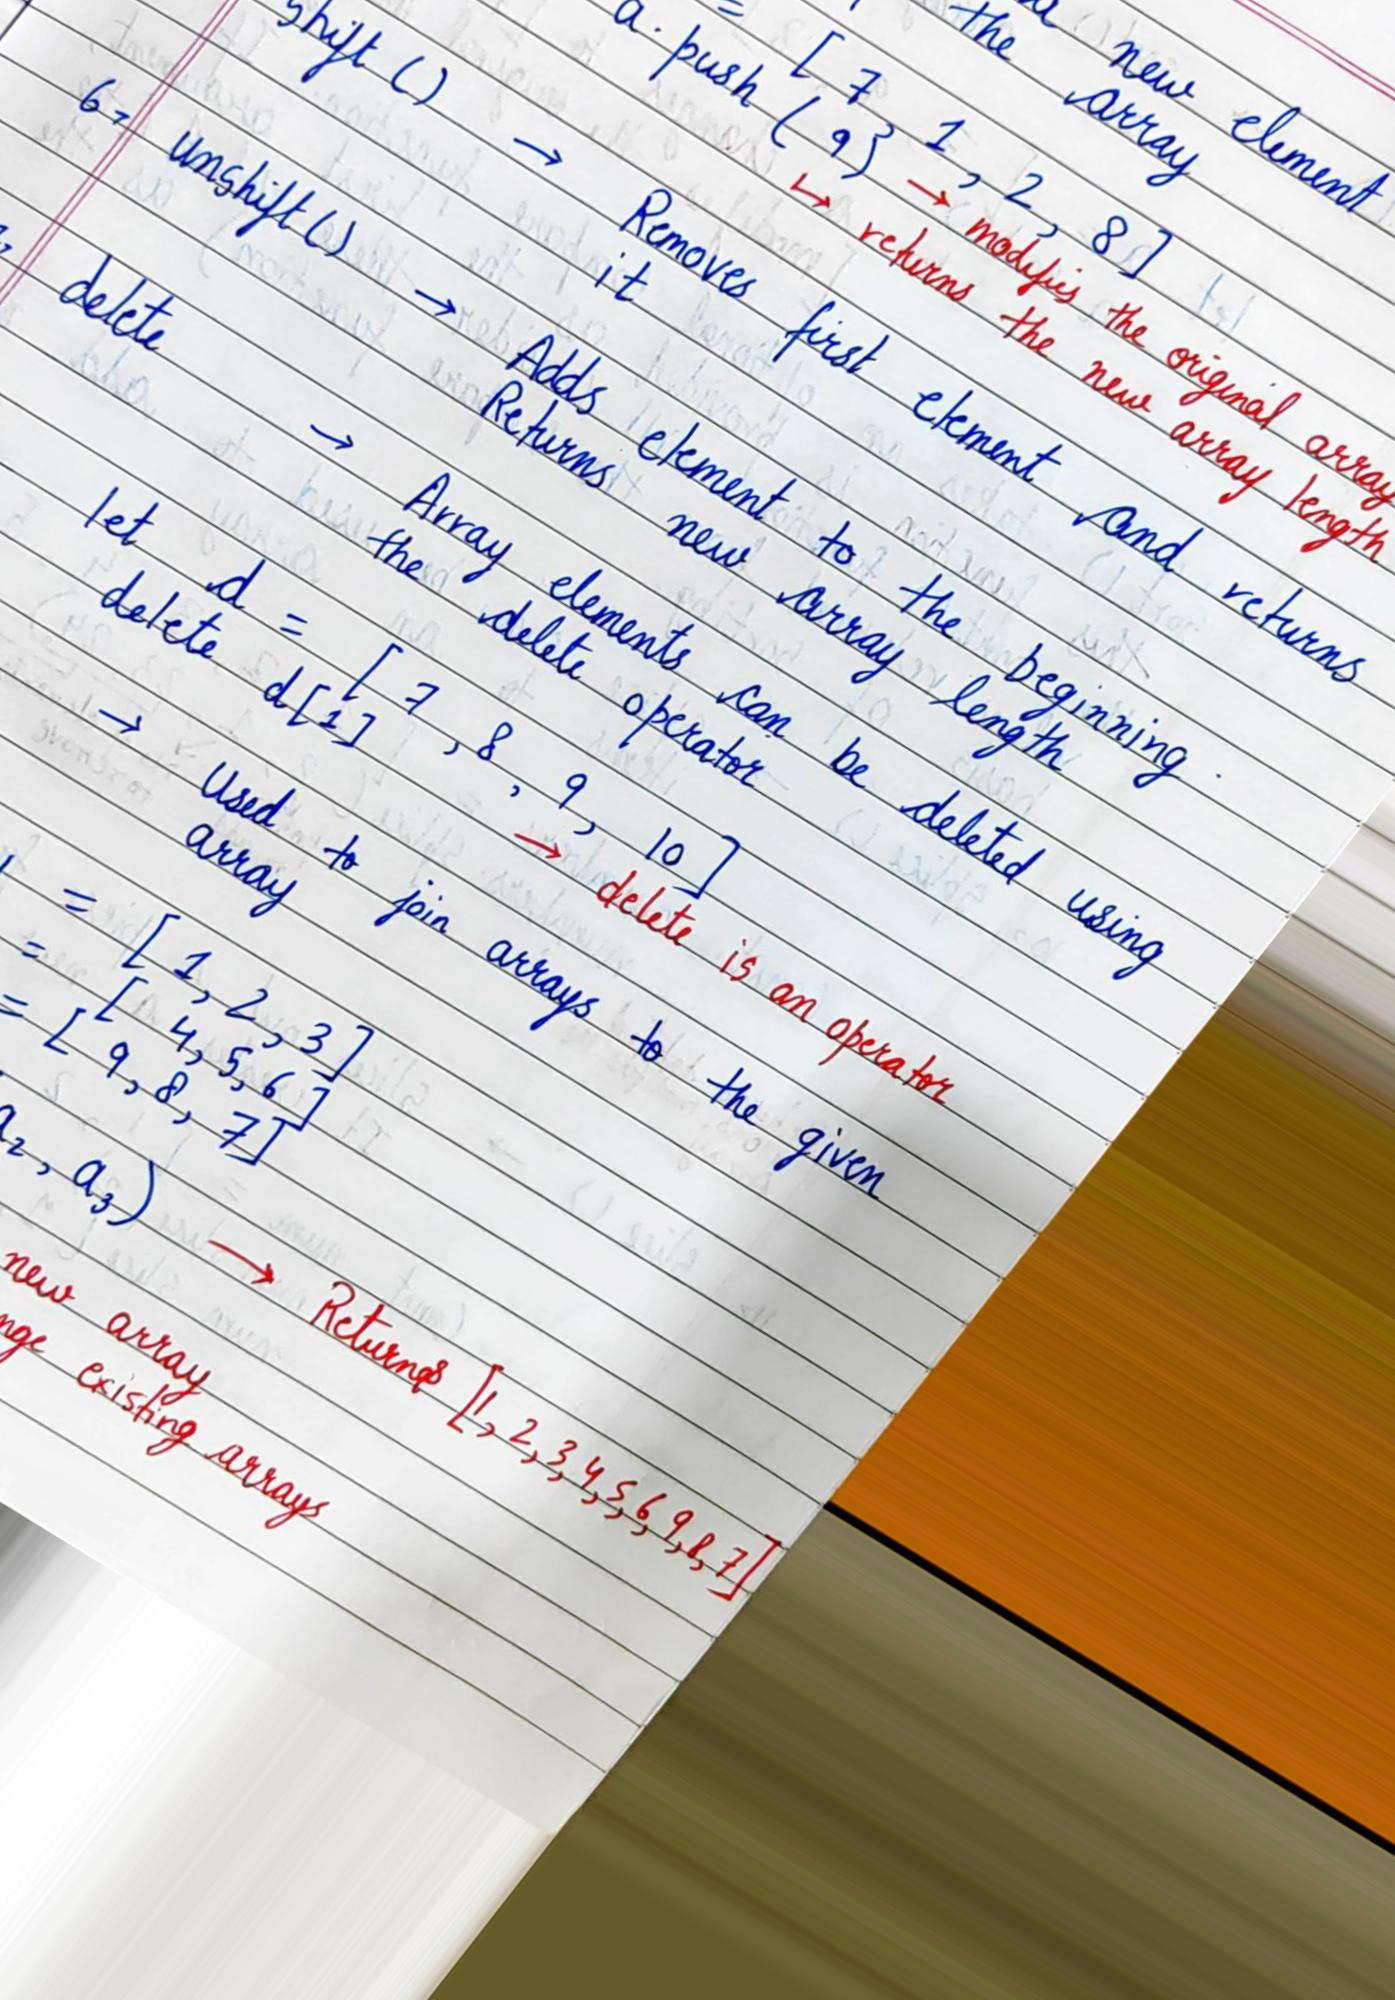 new element
the array
= [ 7 1 , 2 , 8 ]
a. push ( 9 } → modifies the original array
↳ returns the new array length
shift () → Removes first element and returns
it
6→ unshift() → Adds element to the beginning.
Returns new array length
delete → Array elements can be deleted using
the delete operator
let d = [ 7 , 8 , 9 , 10 ]
delete d[1] → delete is an operator
→ Used to join arrays to the given
array
= [ 1, 2, 3 ]
= [ 4, 5, 6 ]
= [ 9, 8, 7 ]
a2, a3) → Returns [1, 2, 3, 4, 5, 6, 9, 8, 7]
new array
nge existing arrays